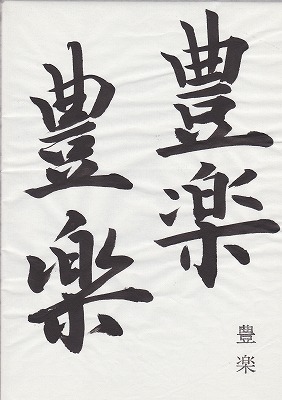 豊楽
豊楽
豊楽